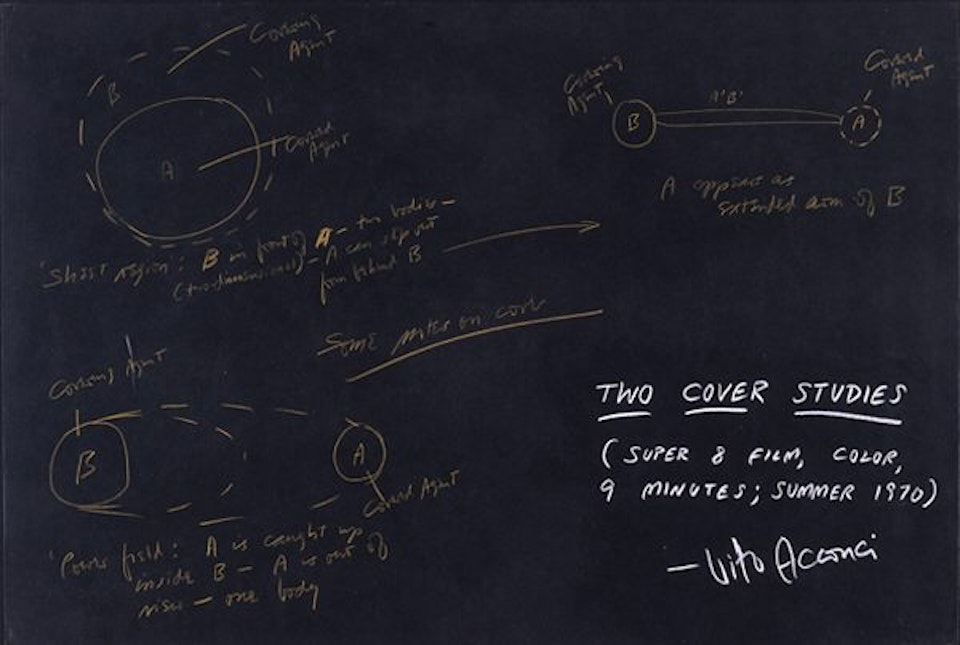 Covering
Agent
B
A
Covered
Agent
'Ghost region': B in front of A — two bodies —
(two-dimensional) — A can slip out
from behind B
Covering
Agent
B
A'B'
A
Covered
Agent
A appears as
extended arm of B
Some notes on cover
Covering Agent
B
A
Covered Agent
'Power field': A is caught up
inside B — A is out of
view — one body
TWO COVER STUDIES
(SUPER 8 FILM, COLOR,
9 MINUTES; SUMMER 1970)
— Vito Acconci